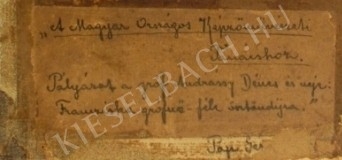 „A Magyar Országos Képzőművészeti
Tanácshoz.
Pályázat a gróf Andrássy Dénes és neje:
Franciska grófnő-féle ösztöndíjra."
Pap Géza
KIESELBACH.HU